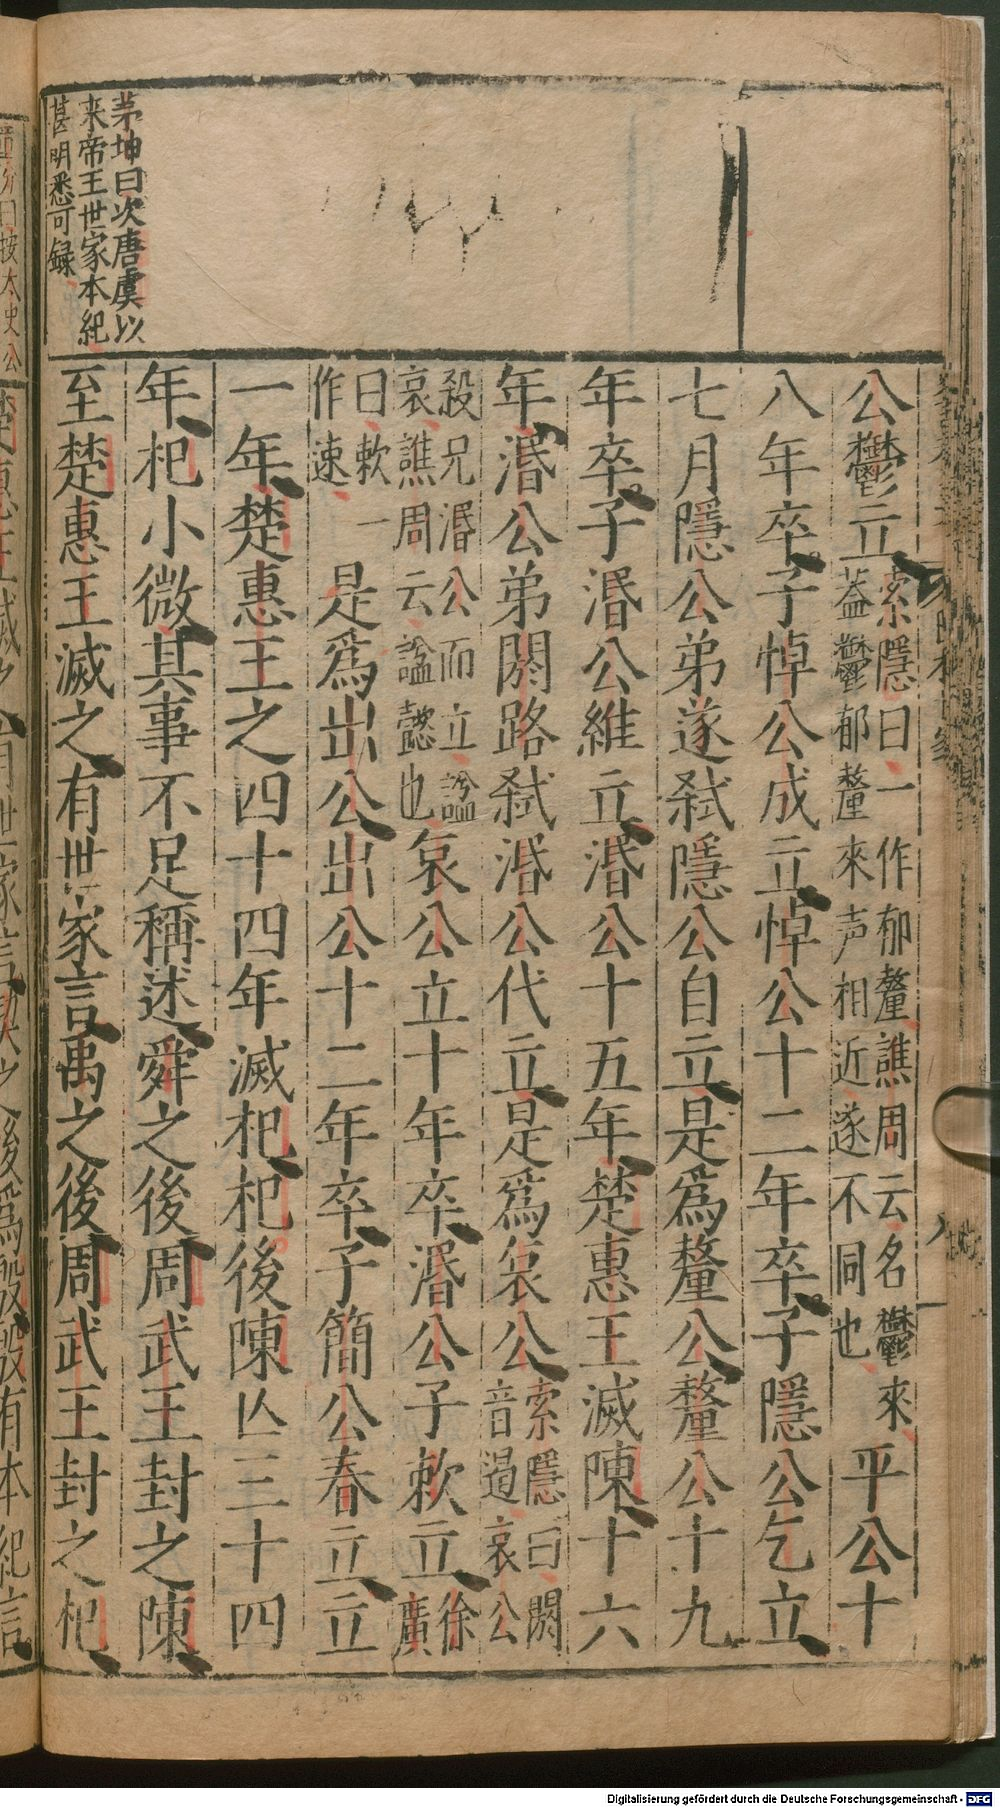 茅坤曰次唐虞以
来帝王世家本紀
甚明悉可録
公鬱立索隱曰一作郁釐譙周云名鬱來
蓋鬱郁釐來声相近遂不同也平公十
八年卒子悼公成立悼公十二年卒子隱公乞立
七月隱公弟遂弒隱公自立是爲釐公釐公十九
年卒子湣公維立湣公十五年楚惠王滅陳十六
年湣公弟閼路弒湣公代立是爲哀公索隱曰閼
音遏哀公
殺兄湣公而立謚
哀譙周云謚懿也哀公立十年卒湣公子敕立徐
廣
曰敕一
作速是爲出公出公十二年卒子簡公春立立
一年楚惠王之四十四年滅杞杞後陳亾三十四
年杞小微其事不足稱述舜之後周武王封之陳
至楚惠王滅之有世家言禹之後周武王封之杞
Digitalisierung gefördert durch die Deutsche Forschungsgemeinschaft - DFG